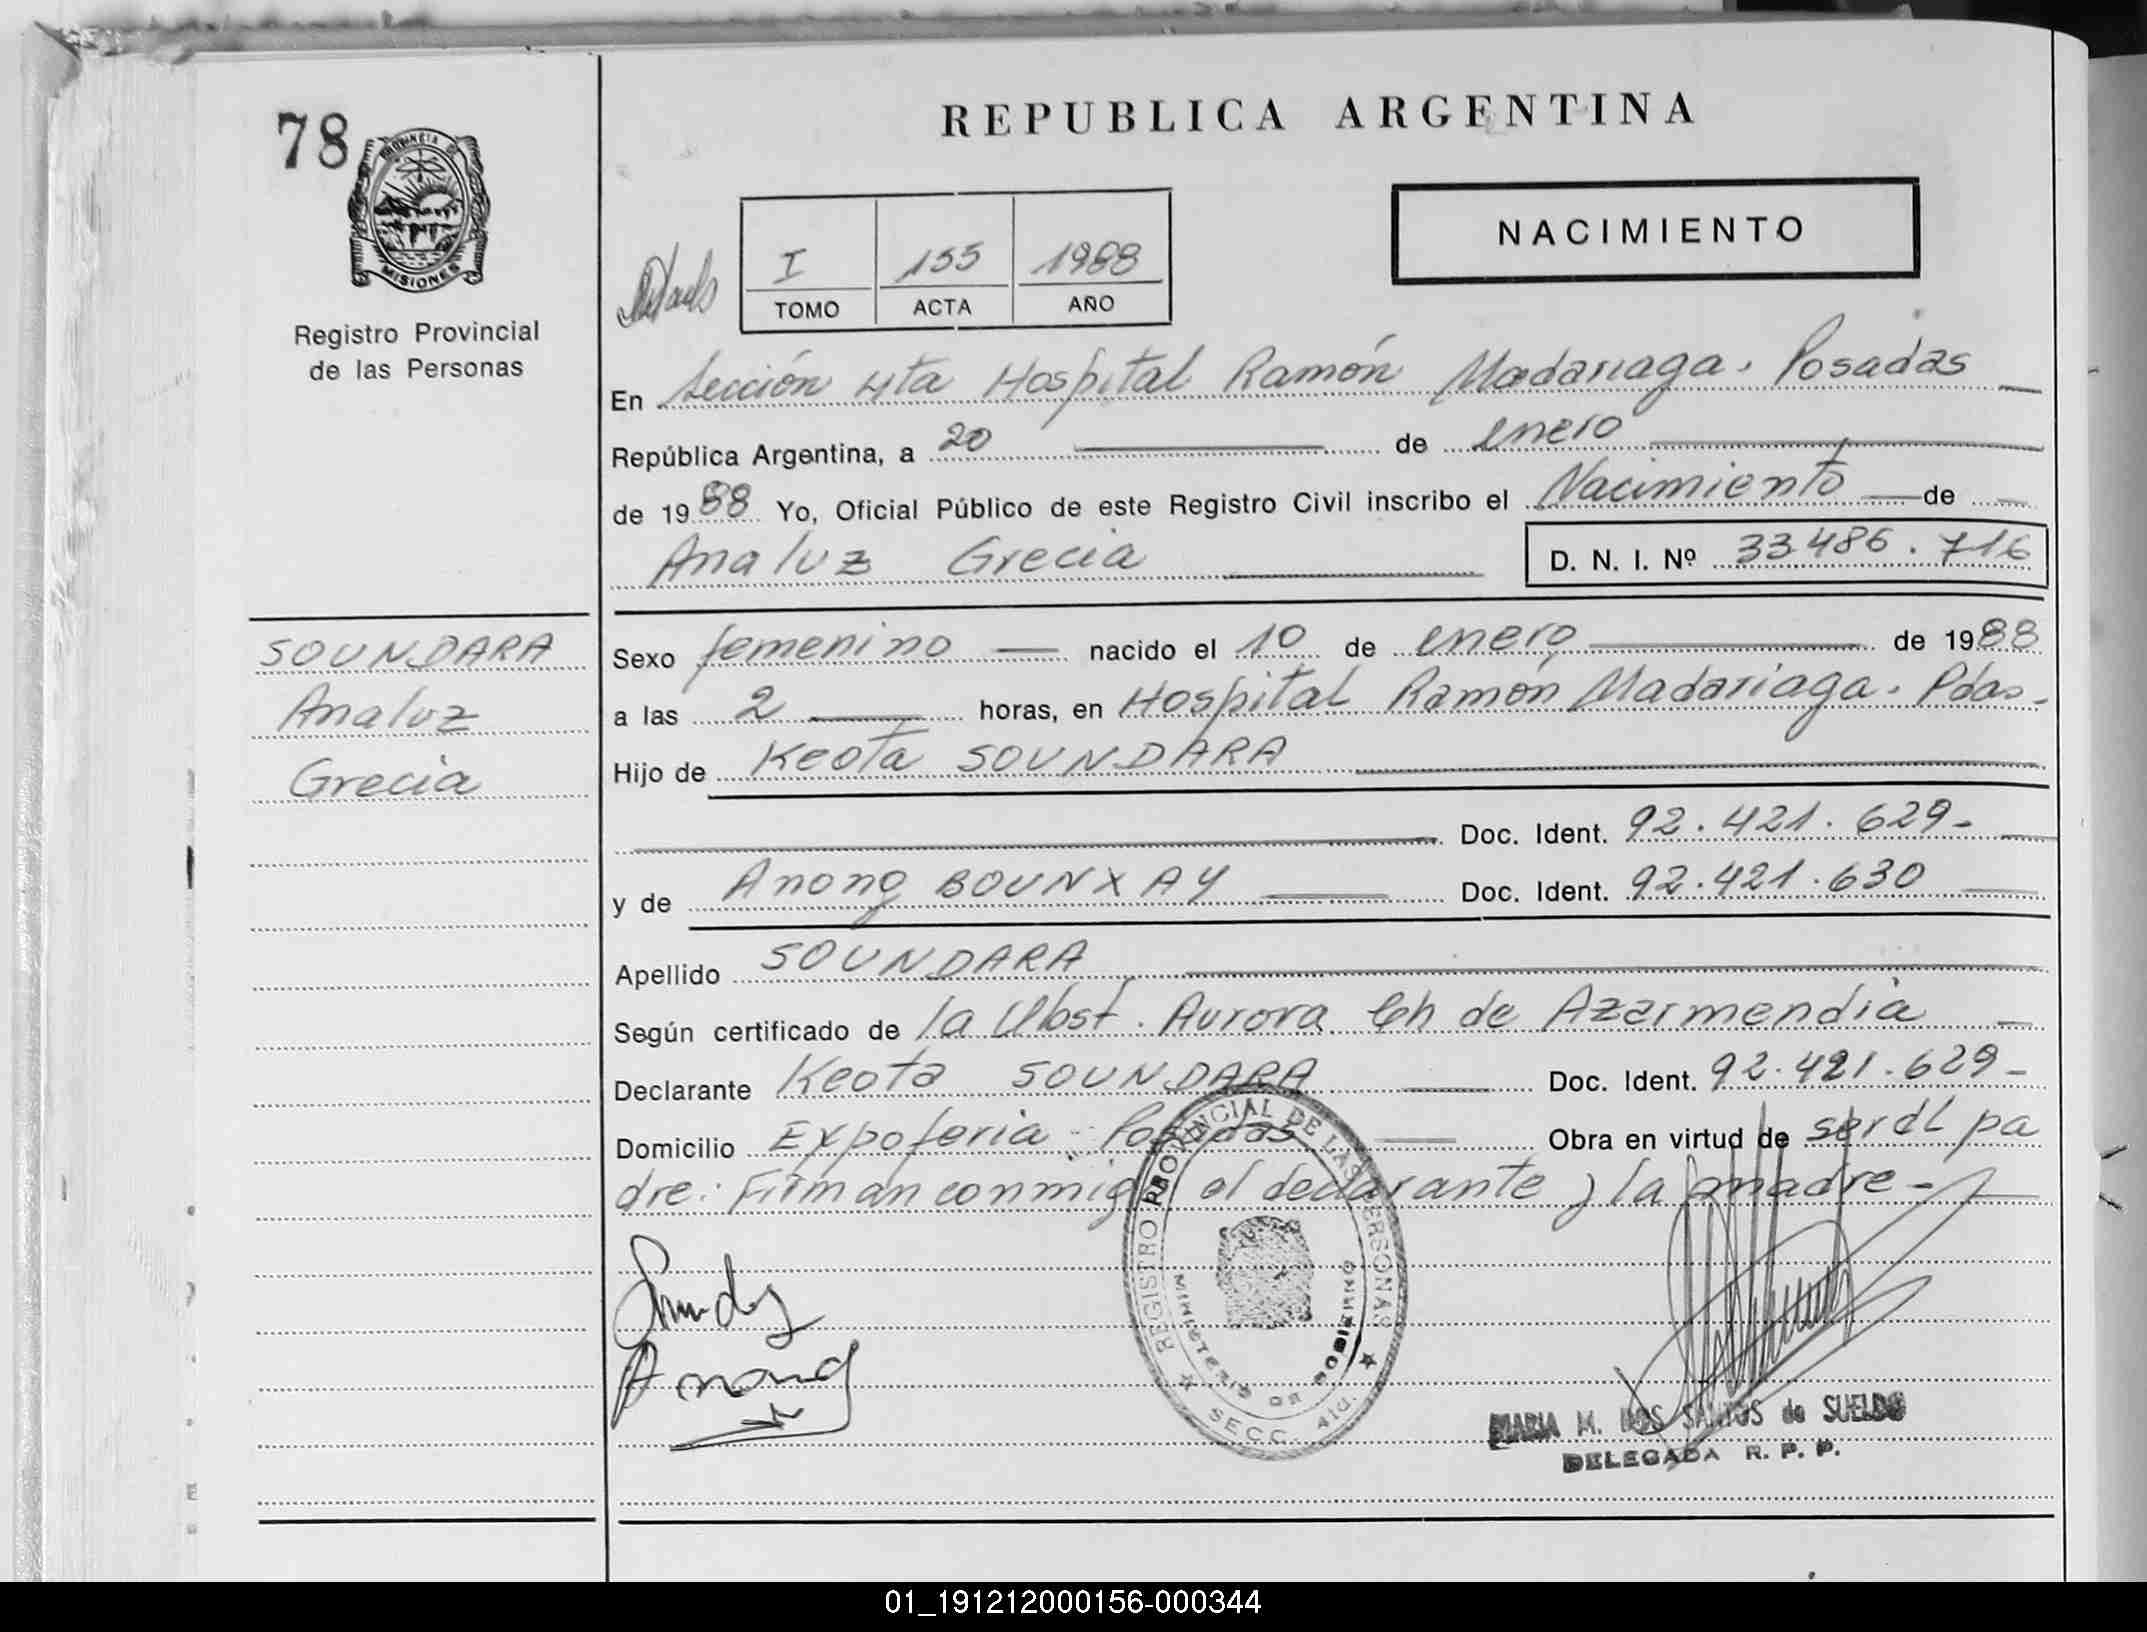 78
PROVINCIA DE
MISIONES
Registro Provincial
de las Personas
REPUBLICA ARGENTINA
I 155 1988
TOMO ACTA AÑO
NACIMIENTO
En Sección 4ta Hospital Ramón Madariaga. Posadas
República Argentina, a 20 de enero
de 1988 Yo, Oficial Público de este Registro Civil inscribo el Nacimiento de
Analuz Grecia D. N. I. Nº 33.486.716
SOUNDARA
Analuz
Grecia
Sexo femenino nacido el 10 de enero de 1988
a las 2 horas, en Hospital Ramón Madariaga. Pdas.
Hijo de Keota SOUNDARA
Doc. Ident. 92.421.629-
y de Anong BOUNXAY Doc. Ident. 92.421.630
Apellido SOUNDARA
Según certificado de la Obst. Aurora Ch de Azarmendia
Declarante Keota SOUNDARA Doc. Ident. 92.421.629-
Domicilio Expoferia - Posadas Obra en virtud de ser dl pa
dre. Firman conmigo el declarante y la madre-
Anong
REGISTRO PROVINCIAL DE LAS PERSONAS
MINISTERIO DE GOBIERNO
SECC. 4ta.
MARIA M. DOS SANTOS de SUELDO
DELEGADA R. P. P.
01_191212000156-000344